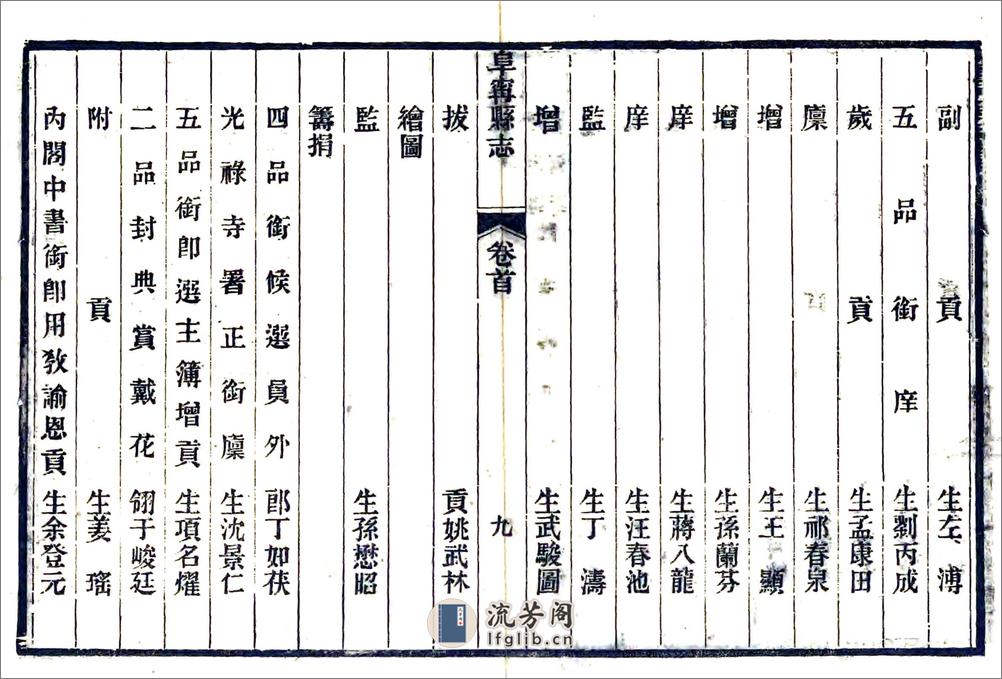 副貢生左溥
五品銜庠生劉丙成
歲貢生孟康田
廩生祁春泉
增生王顯
增生孫蘭芬
庠生蔣八龍
庠生汪春池
監生丁濤
增生武駿圖
阜寧縣志 卷首 九
拔貢姚武林
繪圖
監生孫懋昭
籌捐
四品銜候選員外郎丁如茯
光祿寺署正銜廩生沈景仁
五品銜卽選主簿增貢生項名燿
二品封典賞戴花翎于峻廷
附貢生姜瑤
內閣中書銜卽用敎諭恩貢生余登元
流芳阁
lfglib.cn